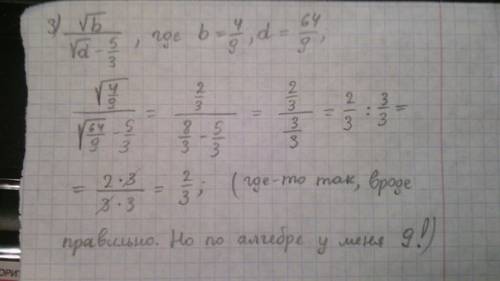 3) √b / (√d − 5/3), где b = 4/9, d = 64/9,
√(4/9) / (√(64/9) − 5/3) = (2/3) / (8/3 − 5/3) = (2/3) / (3/3) = 2/3 : 3/3 =
= (2·3) / (3·3) = 2/3; (где-то так, вроде
правильно. Но по алгебре у меня 9!)